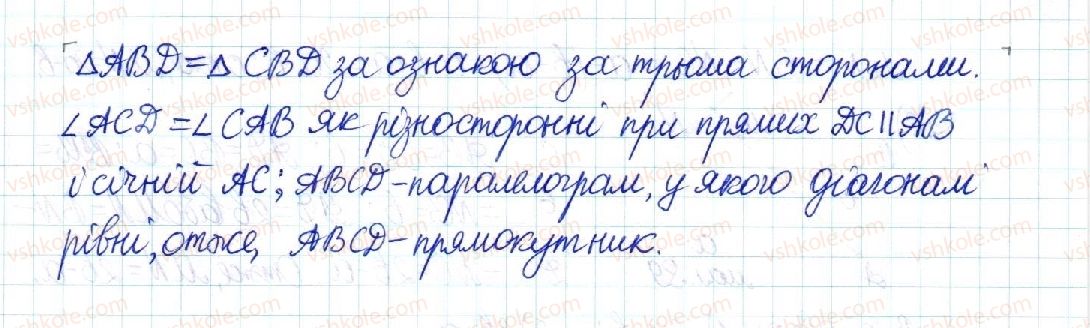 △ABD=△ CBD за ознакою за трьома сторонами.
∠ACD=∠ CAB як різносторонні при прямих DC||AB
і січній AC; ABCD-паралелограм, у якого діагоналі
рівні, отже, ABCD-прямокутник.